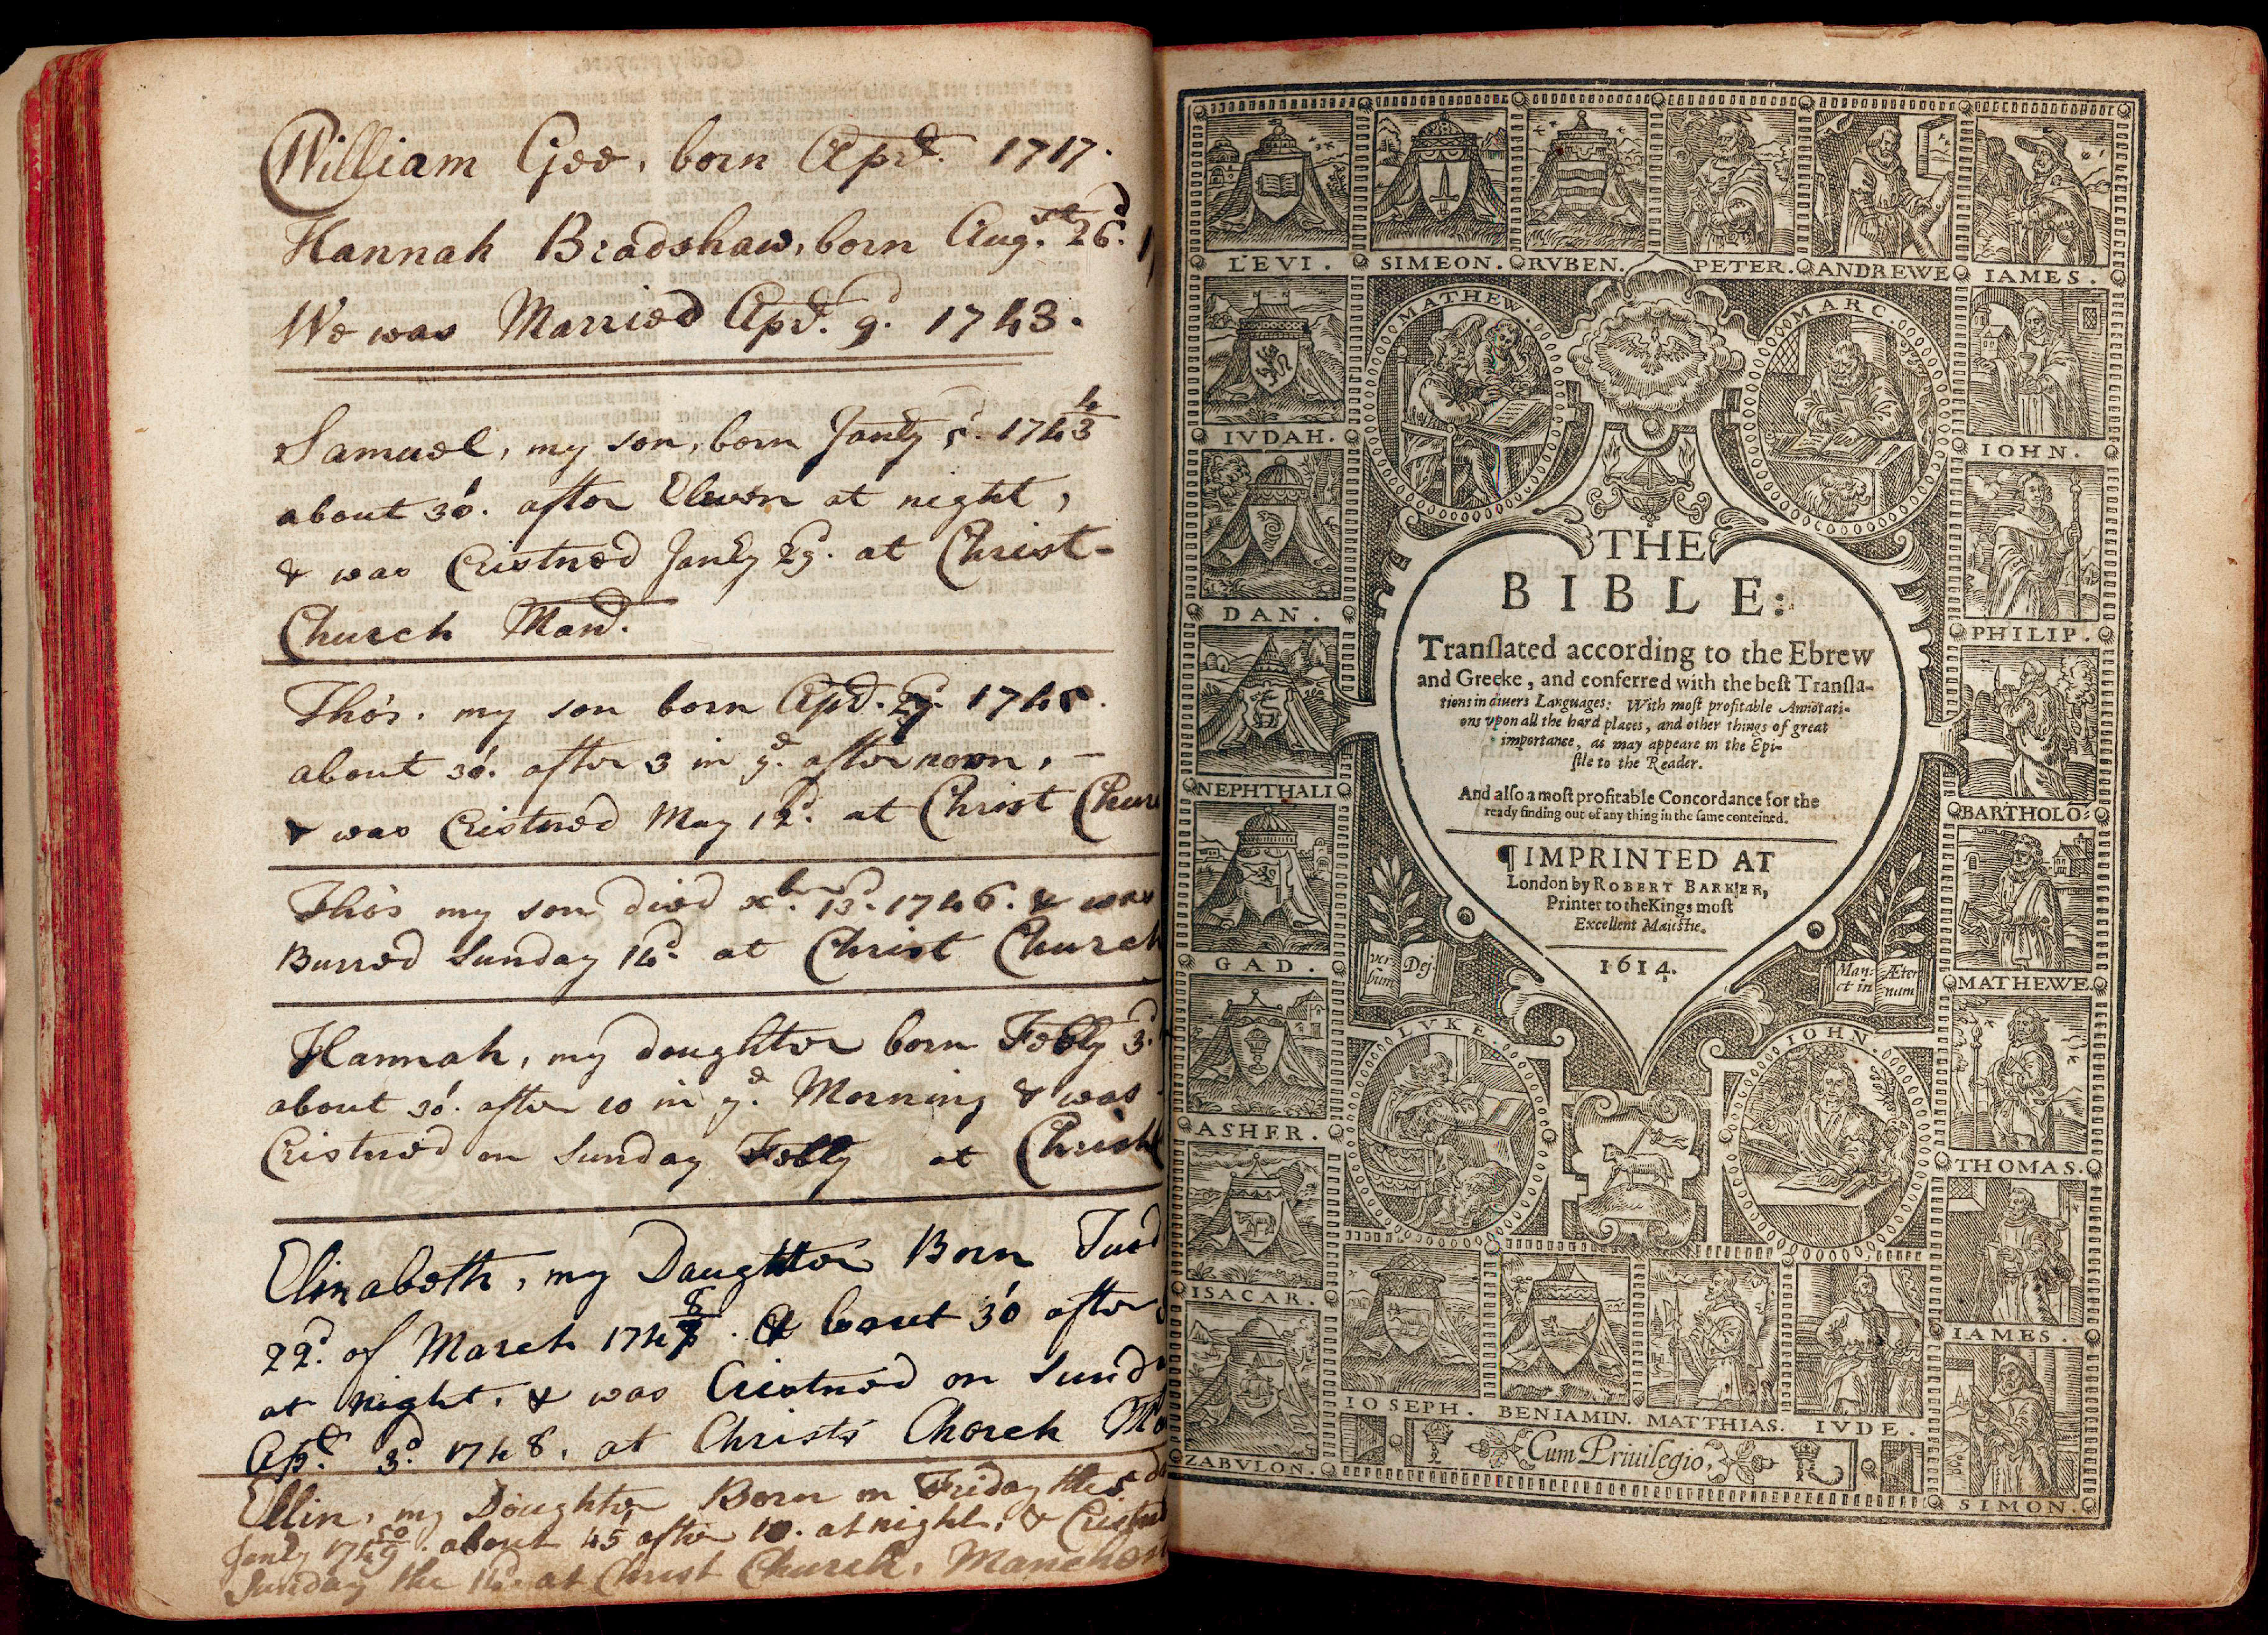 William Gee, born Apr:ll 1717.
Hannah Bradshaw, born Aug:st 26:d
We was Married Apr:l 9:d 1743.
Samuel, my son, born Janry 5:d 174 4/3
about 30'. after Eleven at night,
& was Cristned Janry 29:d at Christ-
Church Man:d
Tho:s. my son born Apr:l. 27:d 1745.
about 30'. after 3 in y:e afternoon, —
& was Cristned May 12:d at Christ
Tho:s my son died xbr. 13:d 1746. & was
Burred Sunday 14:d at Christ Church
Hannah, my doughter born Febry 3:d
about 30'. after 10 in y:e Morning & was
Cristned on Sunday Febry at Christ
Elizabeth, my Daughter Born
22:d of March 174 8/7. About 30' after
at night. & was Cristned on
Apr:l 3:d 1748. at Christs Chorch
Ellin, my Doughter Born on Friday the 5
Janry 17 50/49. about 45' after 10. at night, &
Sunday the 14:d at Christ Church,
LEVI.
SIMEON.
RVBEN.
PETER.
ANDREWE
IAMES.
MATHEW.
MARC.
IVDAH.
IOHN.
DAN.
PHILIP.
NEPHTHALI
BARTHOLO:
GAD.
MATHEWE.
ASHER.
THOMAS.
ISACAR.
IAMES.
ZABVLON.
SIMON.
THE
BIBLE:
Tranſlated according to the Ebrew
and Greeke, and conferred with the beſt Tranſla-
tions in diuers Languages: With moſt profitable Annotati-
ons vpon all the hard places, and other things of great
importance, as may appeare in the Epi-
ſtle to the Reader.
And alſo a moſt profitable Concordance for the
ready finding out of any thing in the ſame conteined.
¶ IMPRINTED AT
London by ROBERT BARKER,
Printer to the Kings moſt
Excellent Maieſtie.
1614.
ver bum Dej
Man: et in Æter num
LVKE.
IOHN.
IOSEPH.
BENIAMIN.
MATTHIAS.
IVDE.
Cum Priuilegio,